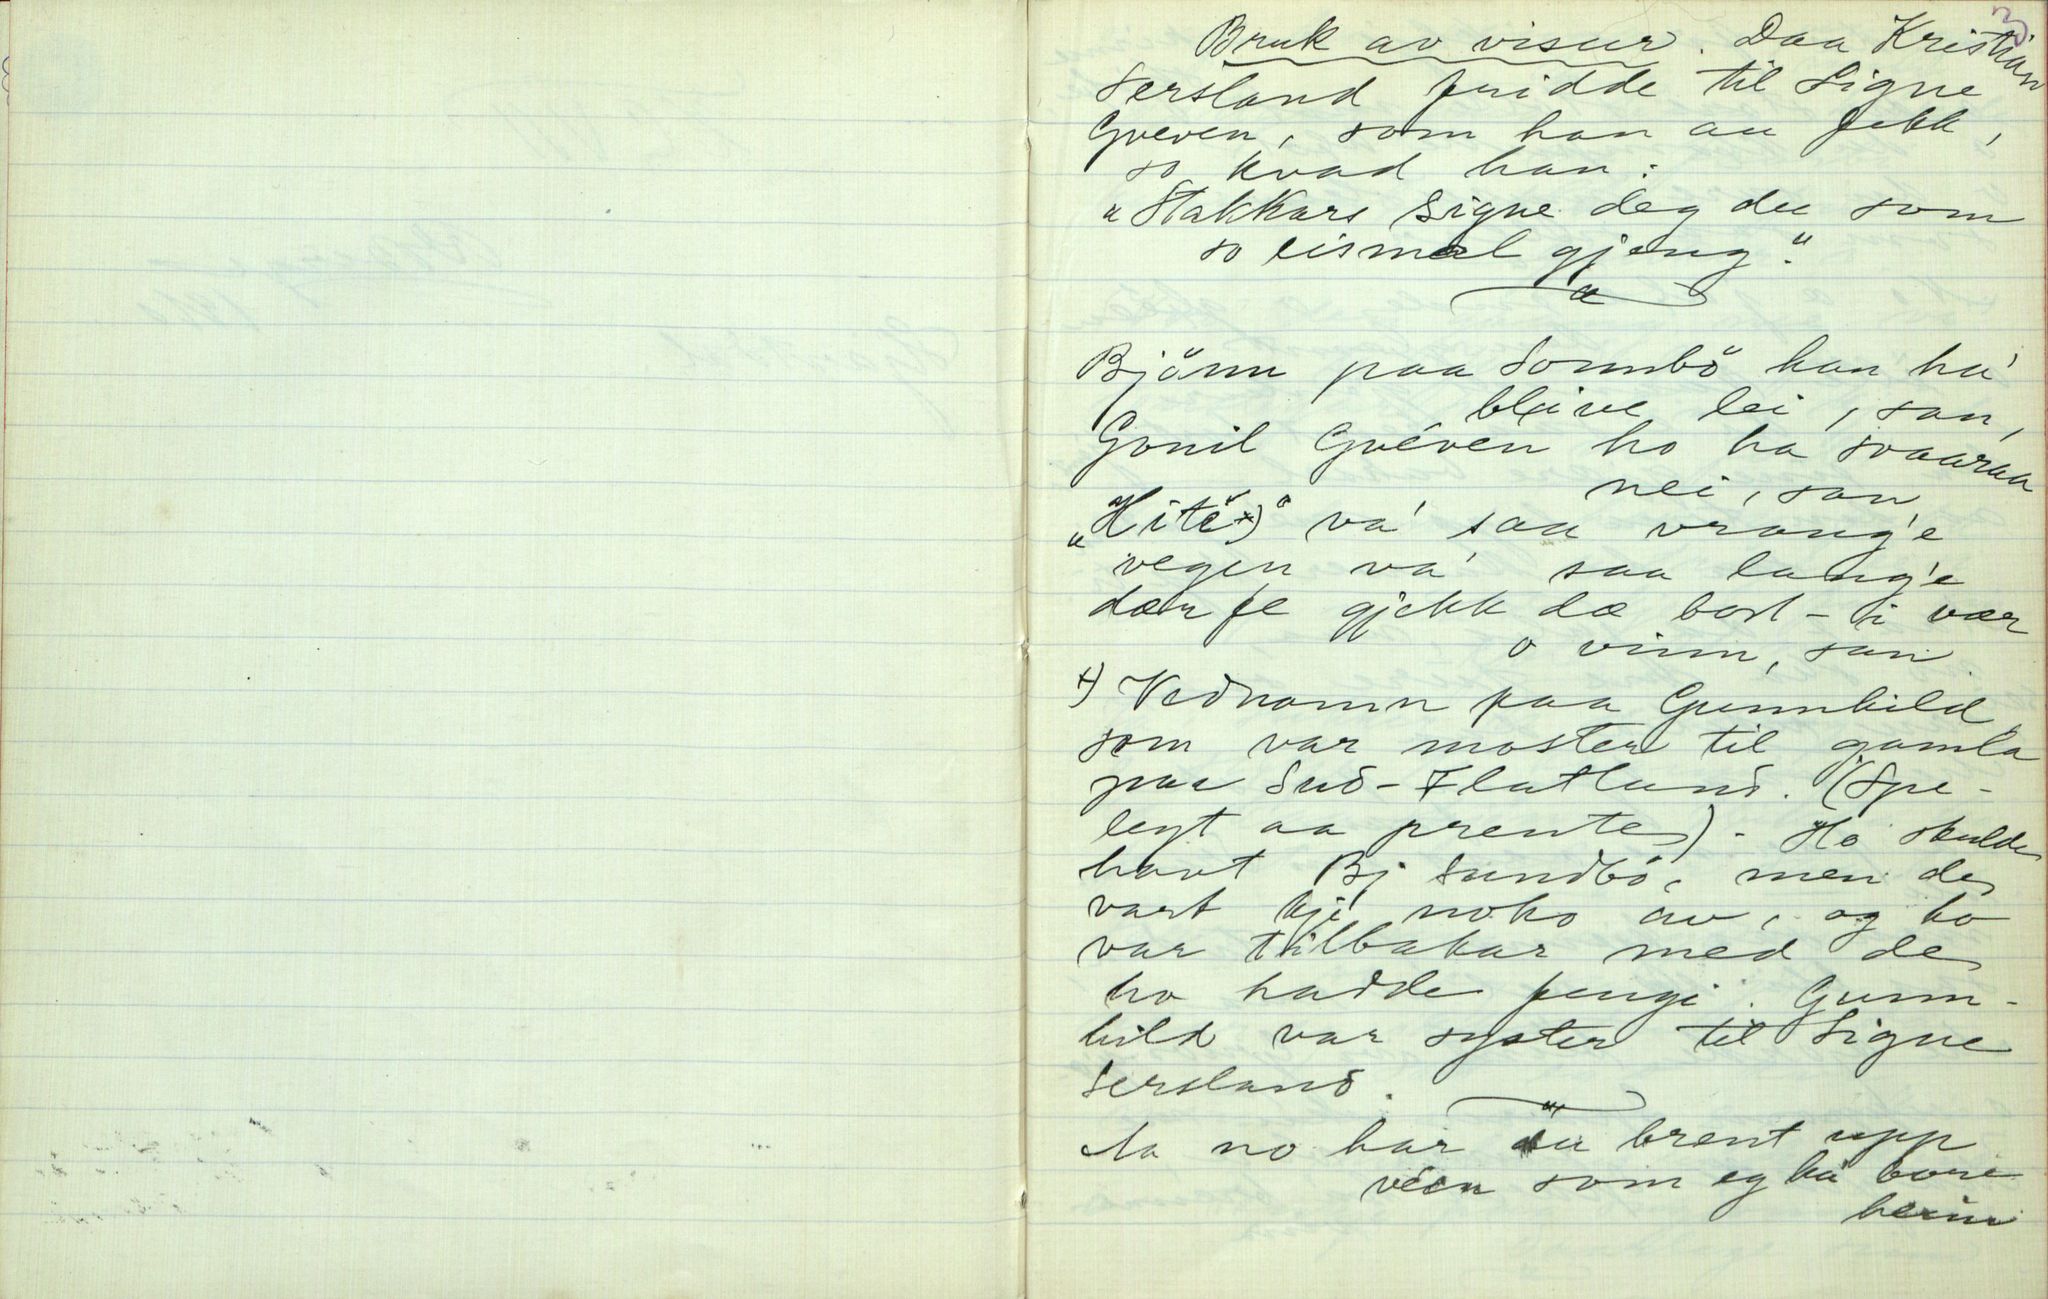 3
Bruk av visur. Daa Kristian
Sersland fridde til Signe
Gveven, som han au fekk,
so kvad han:
"Stakkars Signe deg du som
so eismal gjeng".
Bjönn paa Sonnbö han ha'
bleive lei, san,
Gonil Gvéven ho ha svaaraa
nei, san
"Hitě x)" va' saa vrang'e
vegen va' saa lang'e
dær fe gjekk dæ bort-i vær
o vinn, san
x) Vednamn paa Gunnhild
som var moster til gamla
paa Sud-Flatland. (Spe-
legt aa prente) - Ho skulde
havt Bj Sundbö, men de
vart kji noko av, og ho
var tilbakar med de
ho hadde fengi. Gunn-
hild var syster til Signe
Sersland.
Aa no har du brent upp
véen som eg ha bore
heim